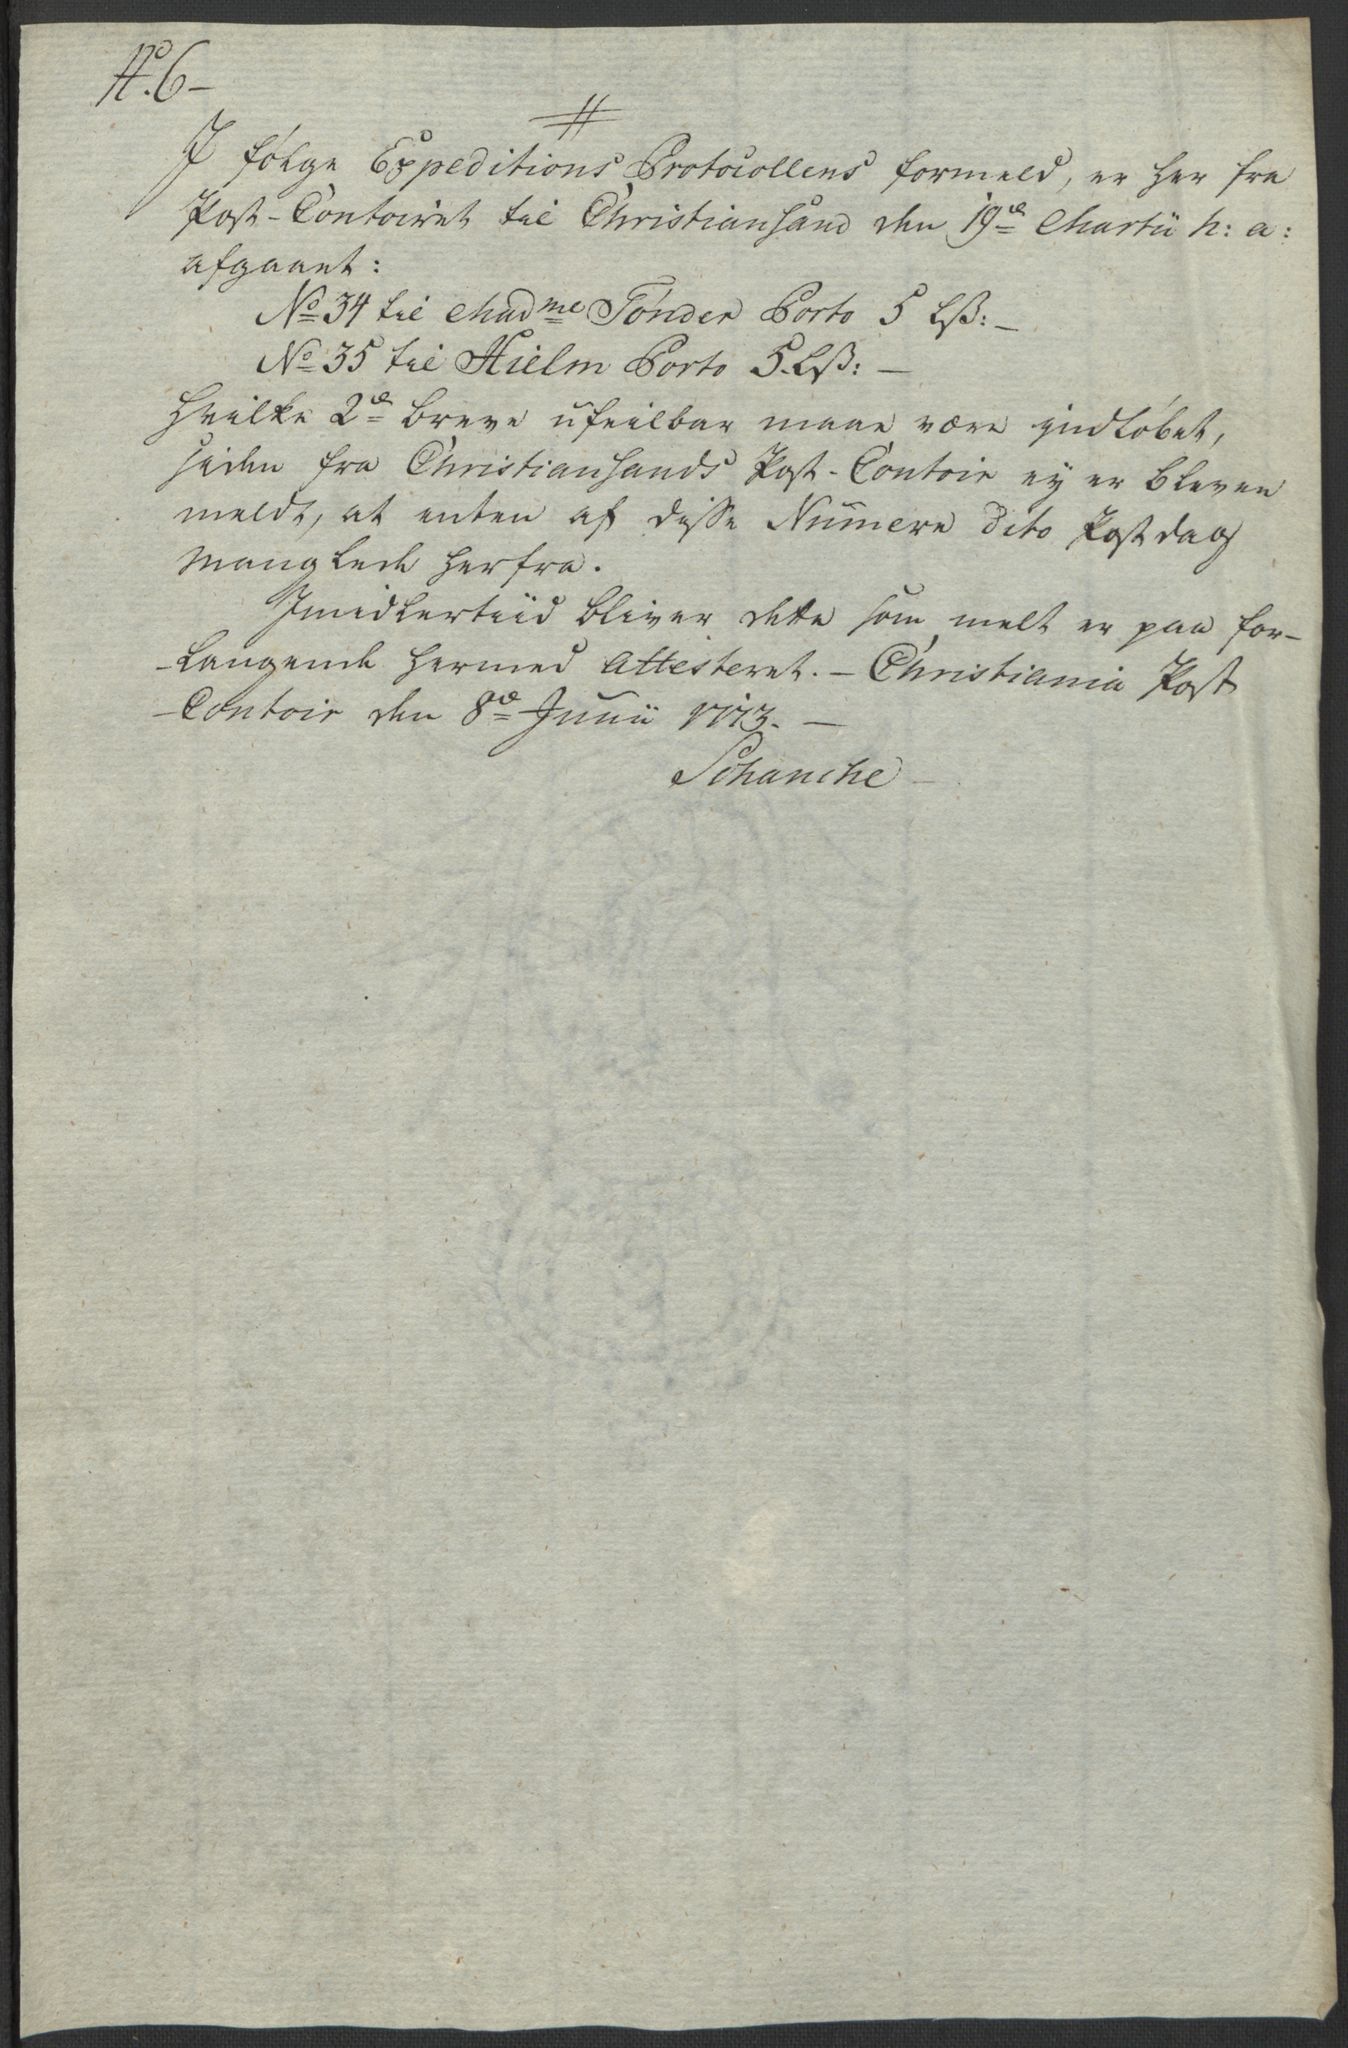 No. 6 –
I følge Expeditions Protocollens formeld, er her fra
Post-Contoiret til Christiansand den 19de Martii h: a:
afgaaet:
No 34 til Madme Tønder Porto 5 lß: –
No 35 til Hielm Porto 5. lß: –
Hvilke 2de breve ufeilbar maae være indløbet,
siden fra Christiansands Post-Contoir ey er bleven
meldt, at enten af disse Numere dito Postdag
manglede herfra.
Imidlertiid bliver dette som melt er paa for-
-langende hermed Attesteret. – Christiania Post
-Contoir den 8de Junii 1773. –
Schanche